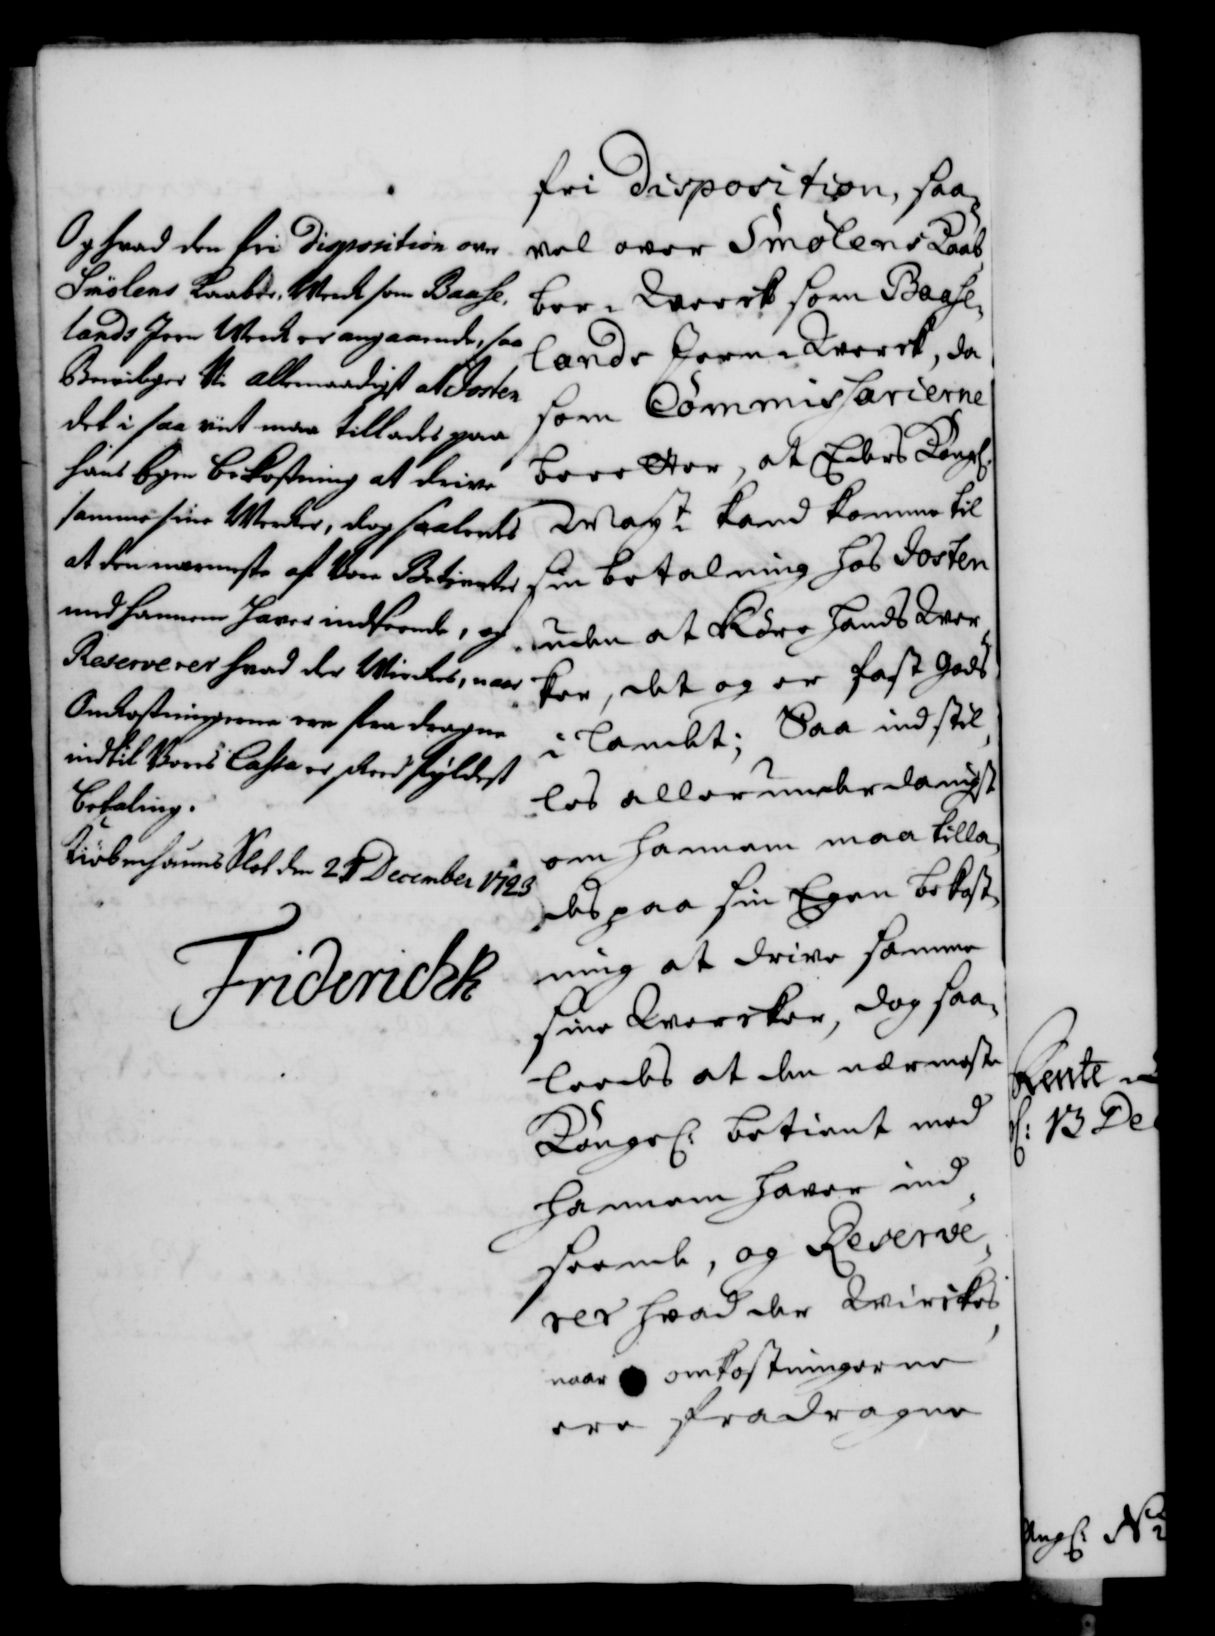 Og hvad den fri Disposition over
Smölens Kaaber-Werk som Baase-
lands Jern Werk er angaaende, saa
Bevilger Vi allernaadigst at Josten
det i saa viit maa tillades paa
hans Egen Bekostning at drive
samme sine Werker, dog saaledes
at den nærmeste af Vore Betiente
med hannem haver indseende, og
Reserverer hvad der Wirckes, naar
Omkostningerne ere fra dragne
indtil Vores Cassa er skeed fyldest
betaling.
Kiöbenhavns Slot den 21 December 1723
Friderich R
fri Disposition, saa-
vel over Smølens Kaab-
ber-Werck som Baase-
lands Jern-Werck, da
som Commissarierne
beretter, at Eders Kongl:
May:t kand komme til
sin betalning hos Josten
uden at Røre hands Wer-
ker, det og er fast Gods
i landet; Saa indstil-
les allerunderdanigst
om hannem maa tilla-
des paa sin Egen bekost-
ning at drive samme
sine Wercker, dog saa-
leedes at den nærmeste
Kongel: betient med
hannem haver ind-
seende, og Reserve-
rer hvad der Wirckes
naar omkostningerne
ere fradragne
Rente
13 De